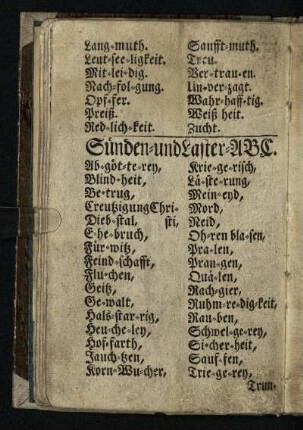 Lang-muth.
Leut-see-ligkeit.
Mit-lei-dig.
Nach-fol-gung.
Opf-fer.
Preiß.
Red-lich-keit.
Sanfft-muth.
Treu.
Ver-trau-en.
Un-ver-zagt.
Wahr-haff-tig.
Weiß heit.
Zucht.
Sünden-und Laster-ABC.
Ab-göt-te-rey,
Blind-heit,
Be-trug,
Creutzigung Chri-
Dieb-stal, sti,
E-he-bruch,
Für-witz,
Feind-schafft,
Flu-chen,
Geitz,
Ge-walt,
Hals-star-rig,
Heu-che-ley,
Hof-farth,
Jauch-tzen,
Korn-Wu-cher,
Krie-ge-risch,
Lä-ste-rung,
Mein-eyd,
Mord,
Neid,
Oh-ren bla-sen,
Pra-len,
Pran-gen,
Quä-len,
Rach-gier,
Ruhm-re-dig-keit,
Rau-ben,
Schwel-ge-rey,
Si-cher-heit,
Sauf-fen,
Trie-ge-rey,
Trun-